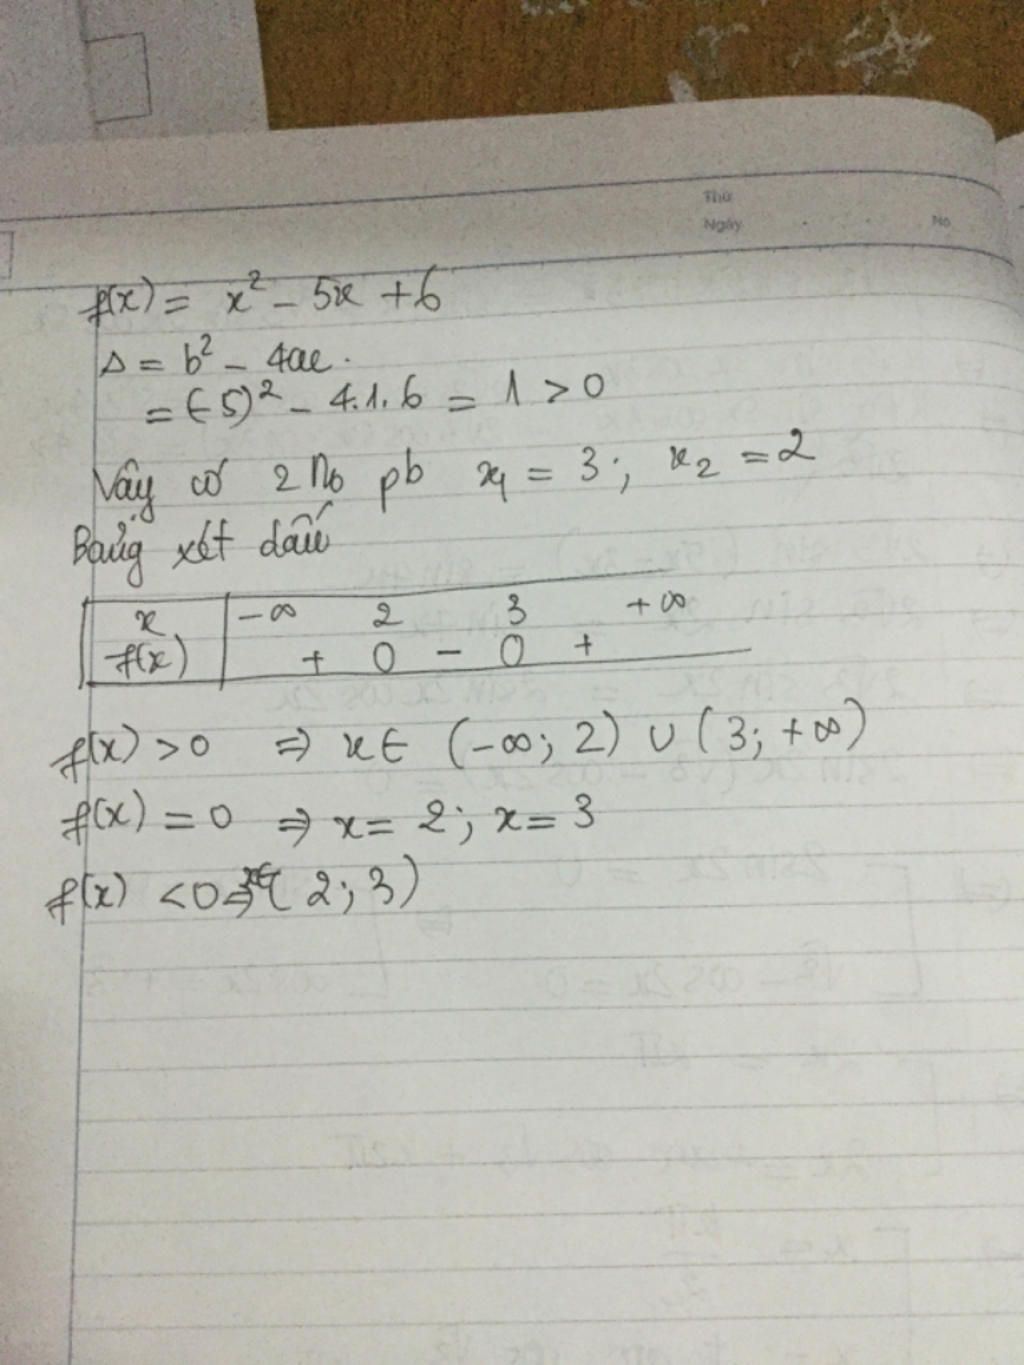 Thứ
Ngày . . No
f(x) = x² - 5x + 6
Δ = b² - 4ac.
= (-5)² - 4.1.6 = 1 > 0
Vậy có 2 No pb x₁ = 3; x₂ = 2
Bảng xét dấu
x -∞ 2 3 +∞
f(x) + 0 - 0 +
f(x) > 0 ⇒ x ∈ (-∞; 2) ∪ (3; +∞)
f(x) = 0 ⇒ x = 2; x = 3
f(x) < 0 ⇒ x∈( 2; 3)